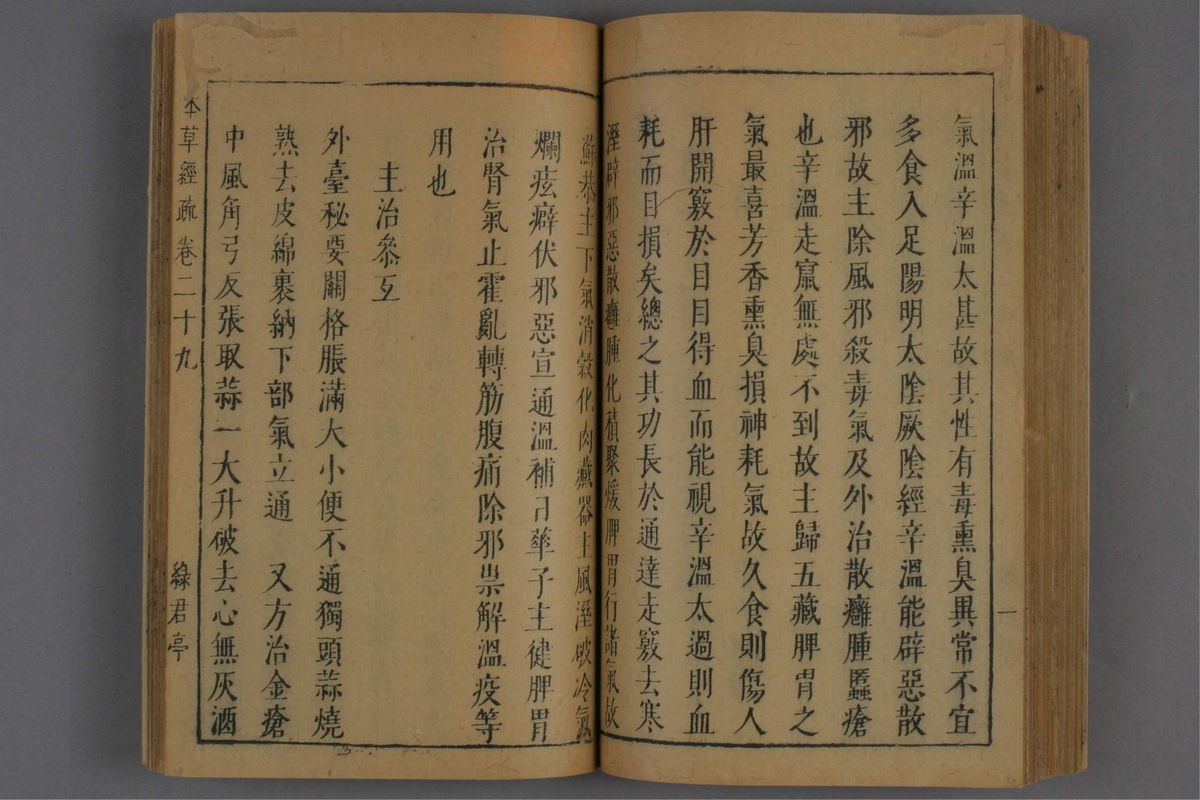 氣溫辛溫太甚故其性有毒熏臭異常不宜
多食入足陽明太陰厥陰經辛溫能辟惡散
邪故主除風邪殺毒氣及外治散癰腫䘌瘡
也辛溫走竄無處不到故主歸五藏脾胃之
氣最喜芳香熏臭損神耗氣故久食則傷人
肝開竅於目目得血而能視辛溫太過則血
耗而目損矣總之其功長於通達走竅去寒
溼辟邪惡散癰腫化積聚煖脾胃行諸氣故
蘇恭主下氣消穀化肉藏器主風溼破冷氣
爛痃癖伏邪惡宣通溫補日華子主健脾胃
治腎氣止霍亂轉筋腹痛除邪祟解溫疫等
用也
主治叅互
外臺秘要關格脹滿大小便不通獨頭蒜燒
熟去皮綿裹納下部氣立通 又方治金瘡
中風角弓反張取蒜一大升破去心無灰酒
本草經疏 卷二十九
綠君亭
一